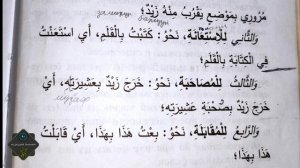 مُرُورِي بِمَوْضِعٍ يَقْرُبُ مِنْهُ زَيْدٌ؛
وَالثَّانِي لِلْاِسْتِعَانَةِ، نَحْوُ: كَتَبْتُ بِالْقَلَمِ، أَيْ اسْتَعَنْتُ
فِي الْكِتَابَةِ بِالْقَلَمِ؛
وَالثَّالِثُ لِلْمُصَاحَبَةِ، نَحْوُ: خَرَجَ زَيْدٌ بِعَشِيرَتِهِ، أَيْ
خَرَجَ زَيْدٌ بِصُحْبَةِ عَشِيرَتِهِ؛
وَالرَّابِعُ لِلْمُقَابَلَةِ، نَحْوُ: بِعْتُ هَذَا بِهَذَا، أَيْ قَابَلْتُ
هَذَا بِهَذَا؛